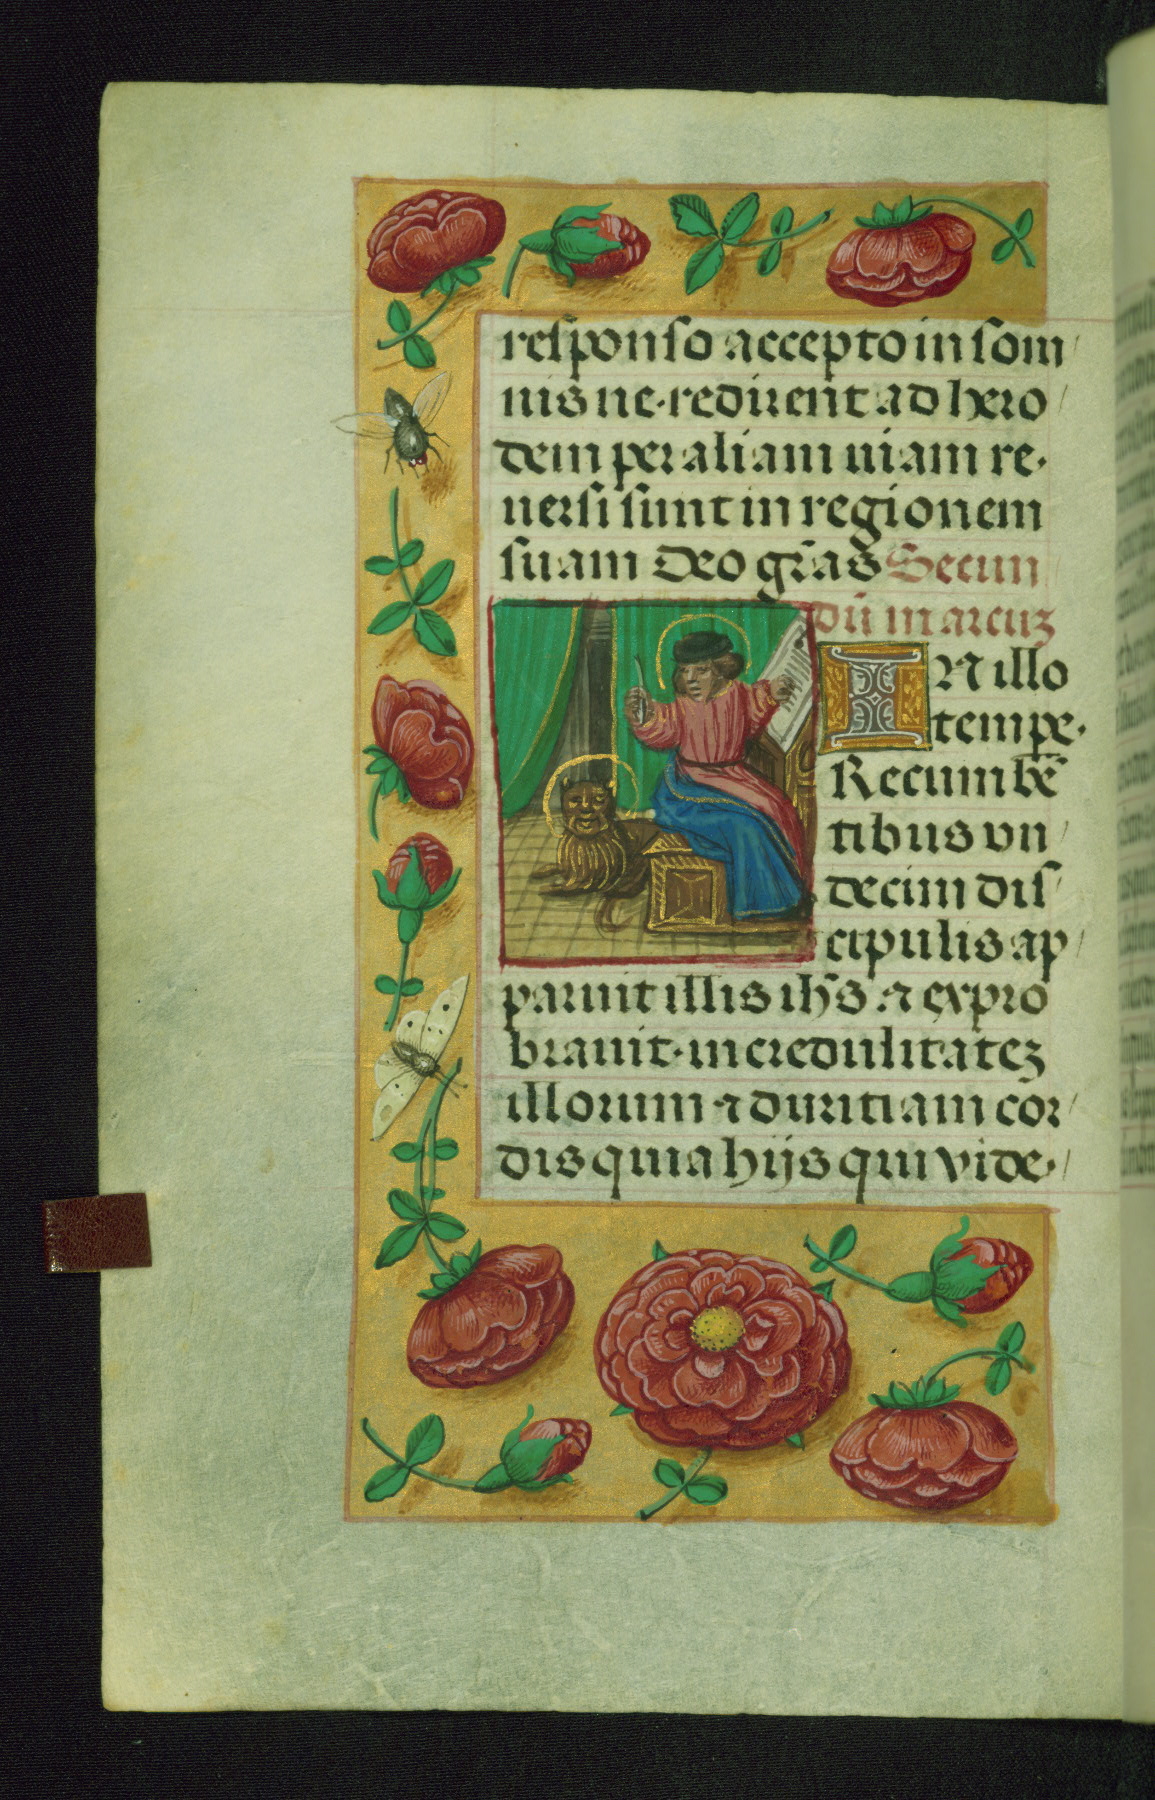 responso accepto in som
nis ne redirent ad hero
dem per aliam uiam re
uersi sunt in regionem
suam Deo gr̄as Secun
dū marcuʒ
IN illo
tempe
Recumbē
tibus vn
decim dis
cipulis ap
paruit illis ihs̄ ⁊ expro
brauit incredulitateʒ
illorum ⁊ duritiam cor
dis quia hijs qui vide